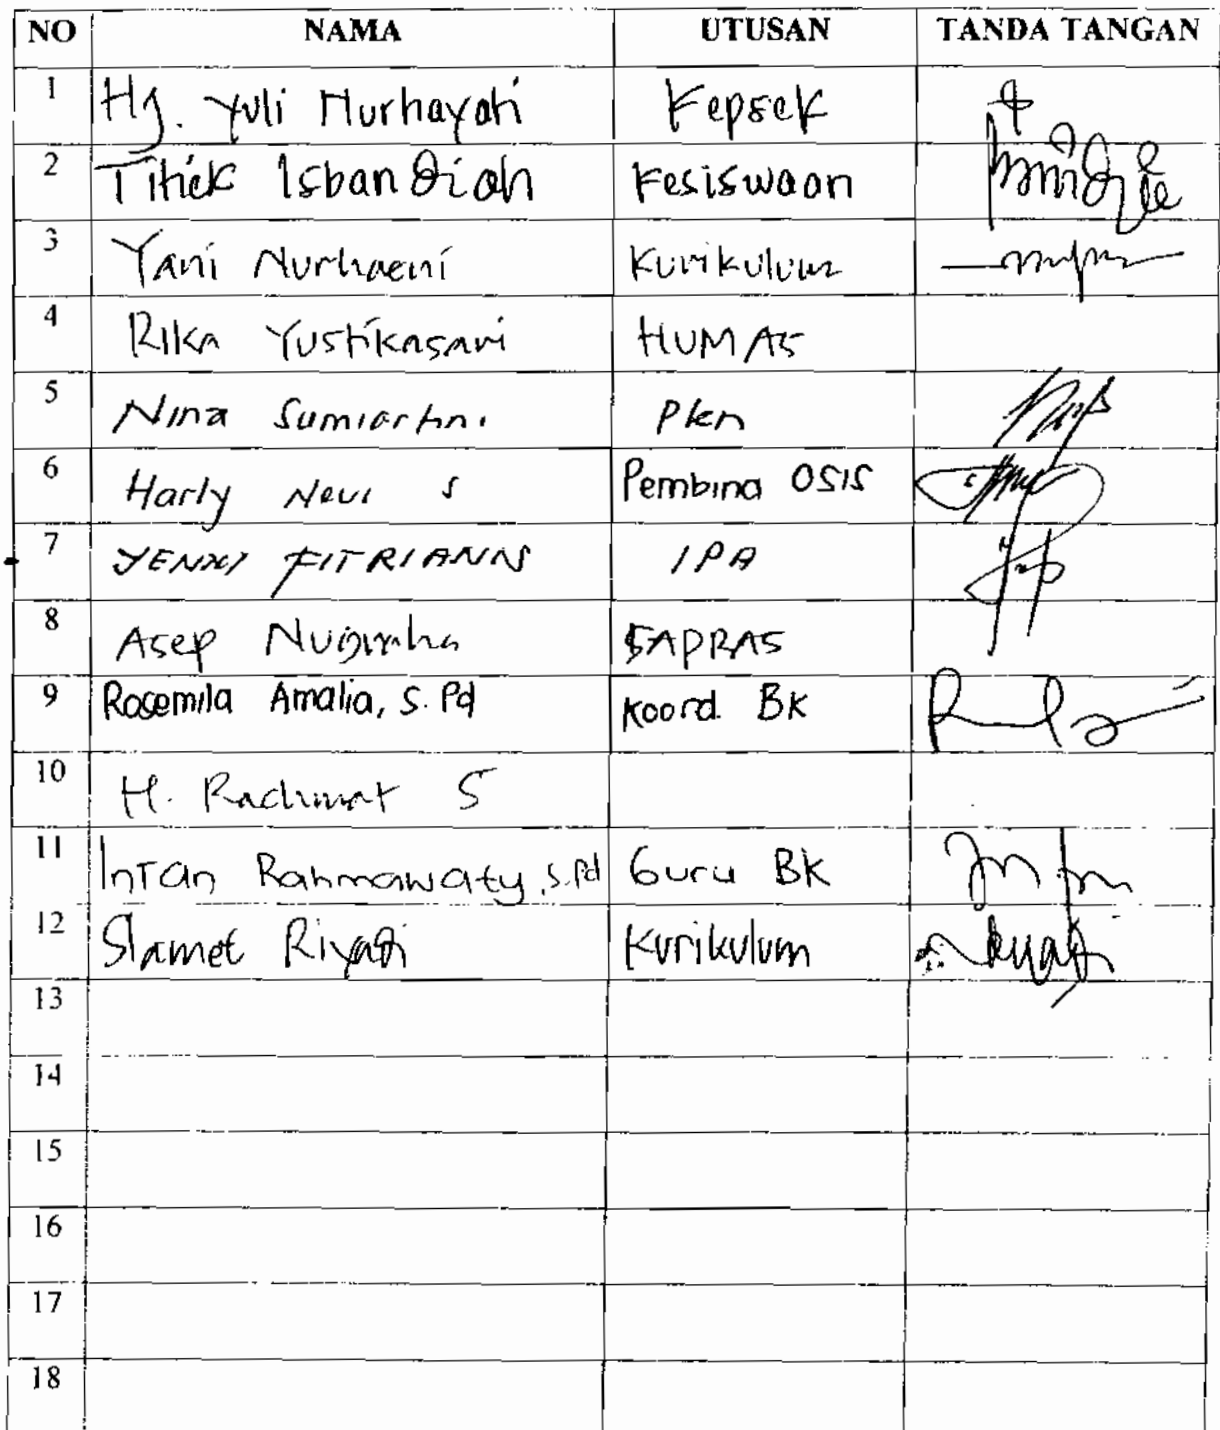 NO NAMA UTUSAN TANDA TANGAN
1 Hj. Yuli Nurhayati Kepsek
2 Titiek Isbandiah Kesiswaan
3 Yani Nurhaeni Kurikulum
4 Rika Yustikasari HUMAS
5 Nina Sumiartini
6 Harly Novi S Pembina OSIS
7 YENNI FITRIANNS IPA
8 Asep Nugraha SAPRAS
9 Rosemila Amalia, S.Pd Koord. BK
10 H. Rachmat S
11 Intan Rahmawaty, S.Pd Guru BK
12 Slamet Riyadi Kurikulum
13
14
15
16
17
18